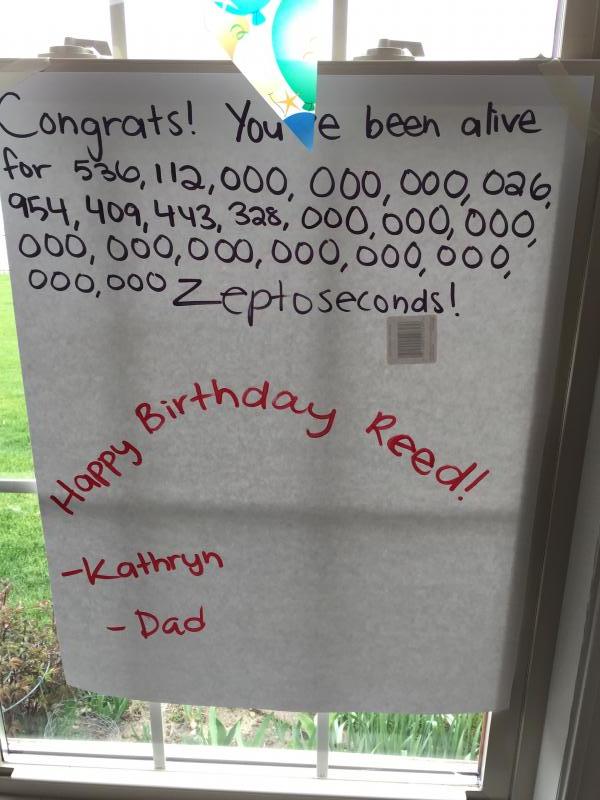 Congrats! You e been alive
for 536,112,000,000,000,026,
954,409,443,328,000,000,000,
000,000,000,000,000,000,
000,000 Zeptoseconds!
Happy Birthday Reed!
-Kathryn
-Dad